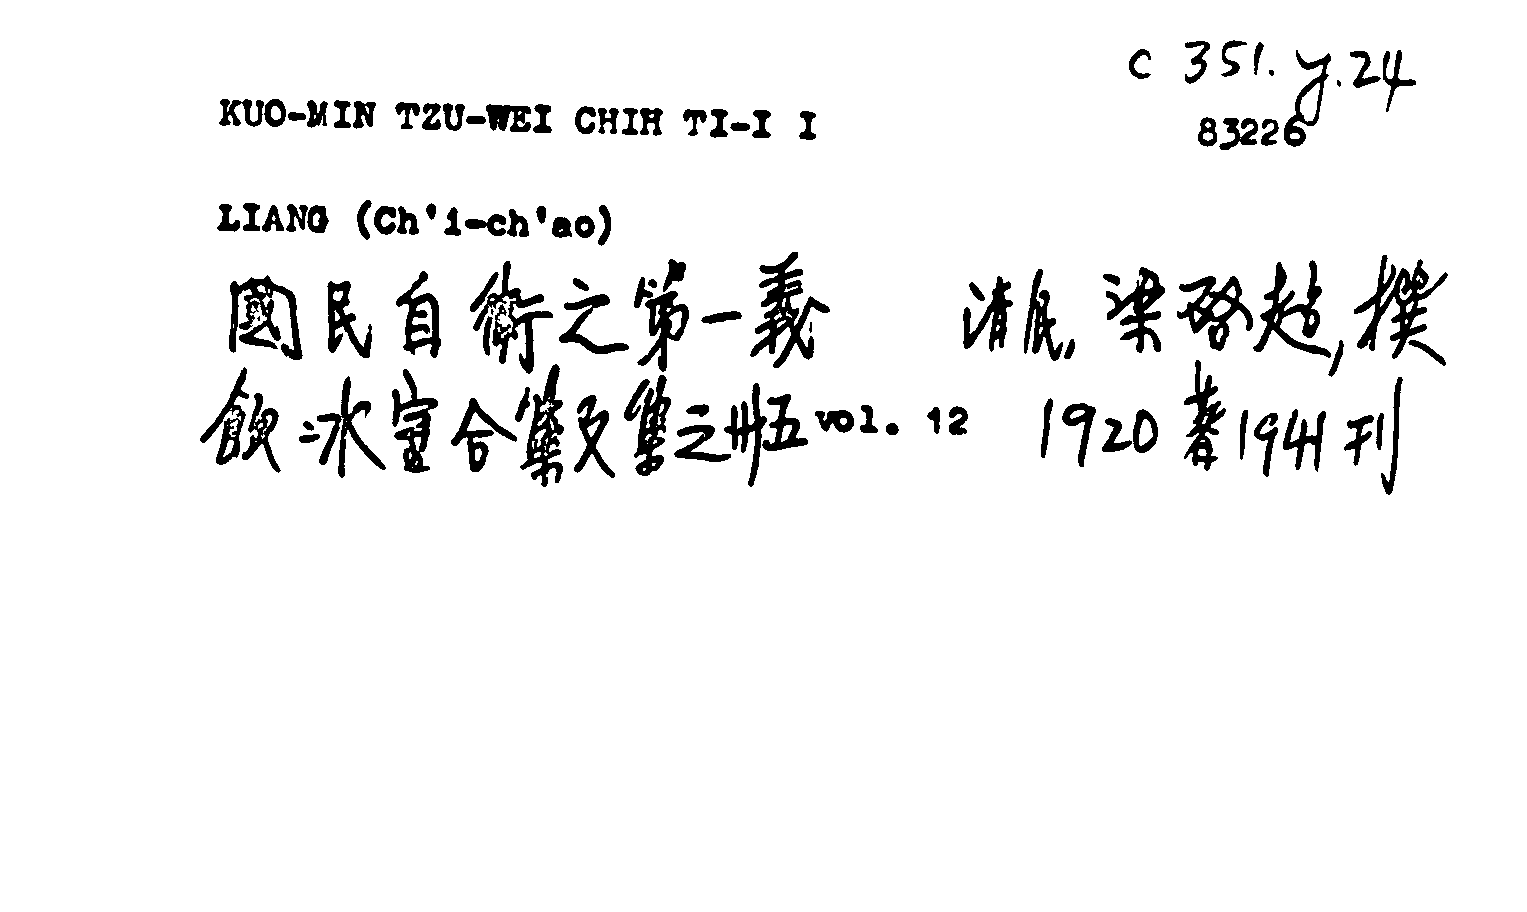 c 351. y.24
KUO-MIN TZU-WEI CHIH TI-I I
83226
LIANG (Ch'i-ch'ao)
國民自衛之第一義 清民, 梁啓超, 撰
飲冰室合集文集之卅五 vol. 12 1920 著 1941 刊